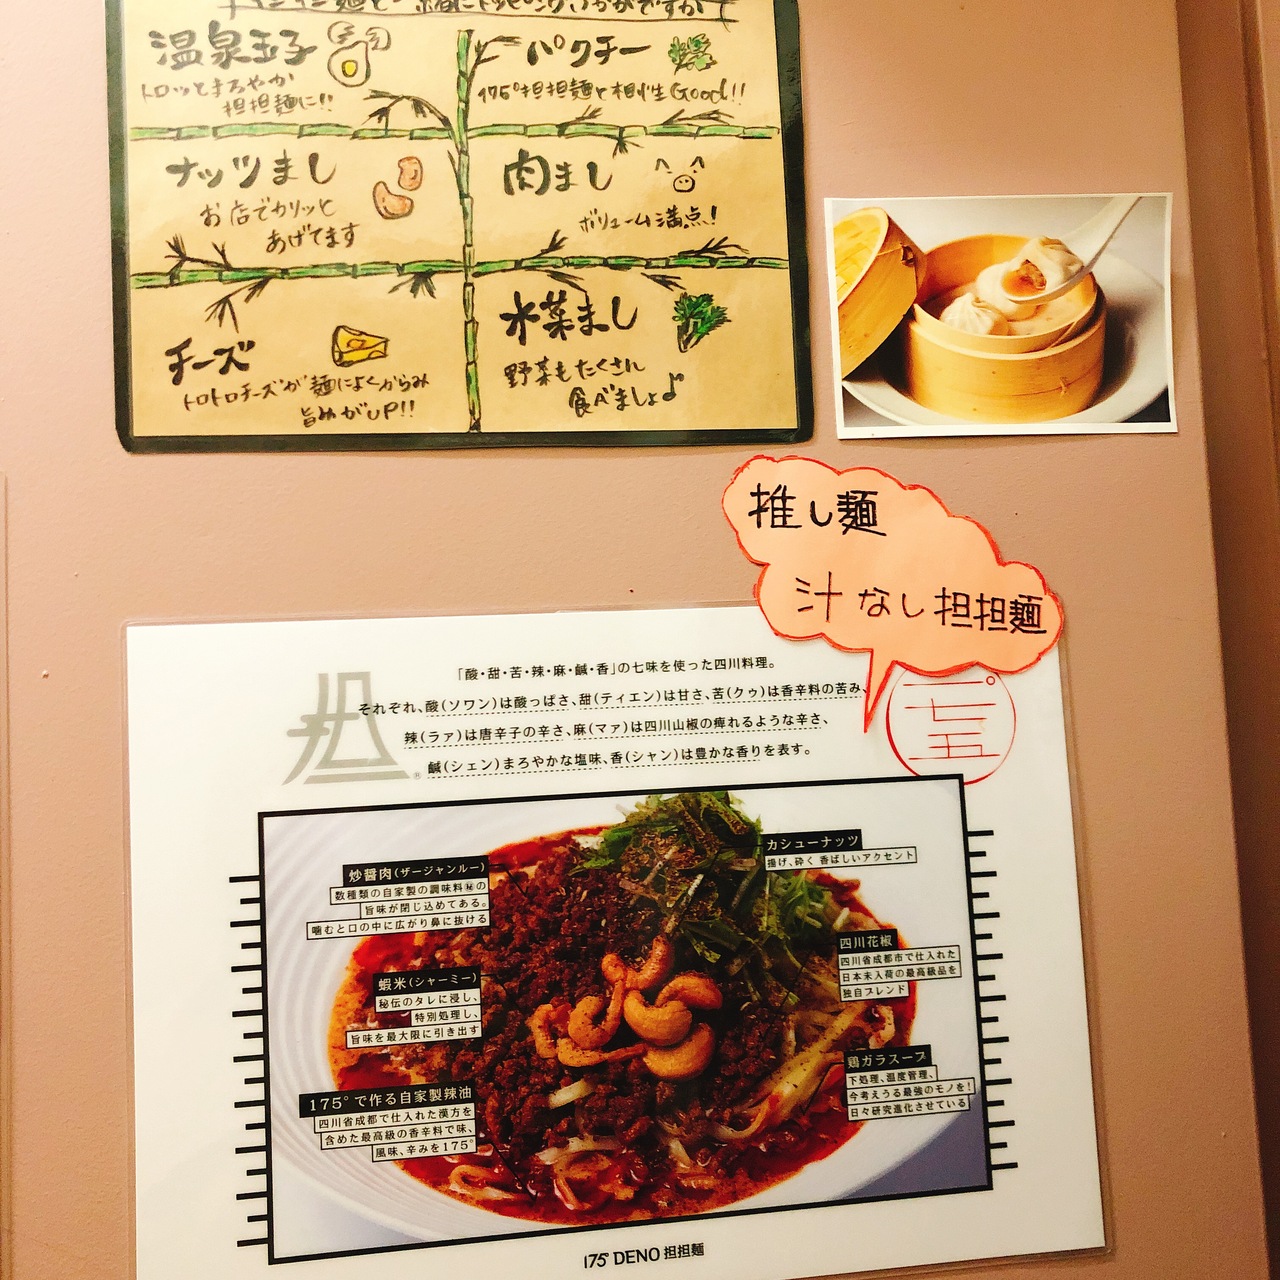 温泉玉子
トロッとまろやか
担担麺に!!
パクチー
175°担担麺と相性Good!!
ナッツまし
お店でカリッと
あげてます
肉まし
ボリューム満点!
チーズ
トロトロチーズが麺によくからみ
旨みがUP!!
水菜まし
野菜もたくさん
食べましょ♪
推し麺
汁なし担担麺
「酸・甜・苦・辣・麻・鹹・香」の七味を使った四川料理。
それぞれ、酸(ソワン)は酸っぱさ、甜(ティエン)は甘さ、苦(クゥ)は香辛料の苦み、
辣(ラァ)は唐辛子の辛さ、麻(マァ)は四川山椒の痺れるような辛さ、
鹹(シェン)まろやかな塩味、香(シャン)は豊かな香りを表す。
担®
一七五°
炒醤肉(ザージャンルー)
数種類の自家製の調味料㊙の
旨味が閉じ込めてある。
噛むと口の中に広がり鼻に抜ける
蝦米(シャーミー)
秘伝のタレに浸し、
特別処理し、
旨味を最大限に引き出す
175°で作る自家製辣油
四川省成都で仕入れた漢方を
含めた最高級の香辛料で味、
風味、辛みを175°
カシューナッツ
揚げ、砕く 香ばしいアクセント
四川花椒
四川省成都市で仕入れた
日本未入荷の最高級品を
独自ブレンド
鶏ガラスープ
下処理、温度管理、
今考えうる最強のモノを!
日々研究進化させている
175° DENO 担担麺